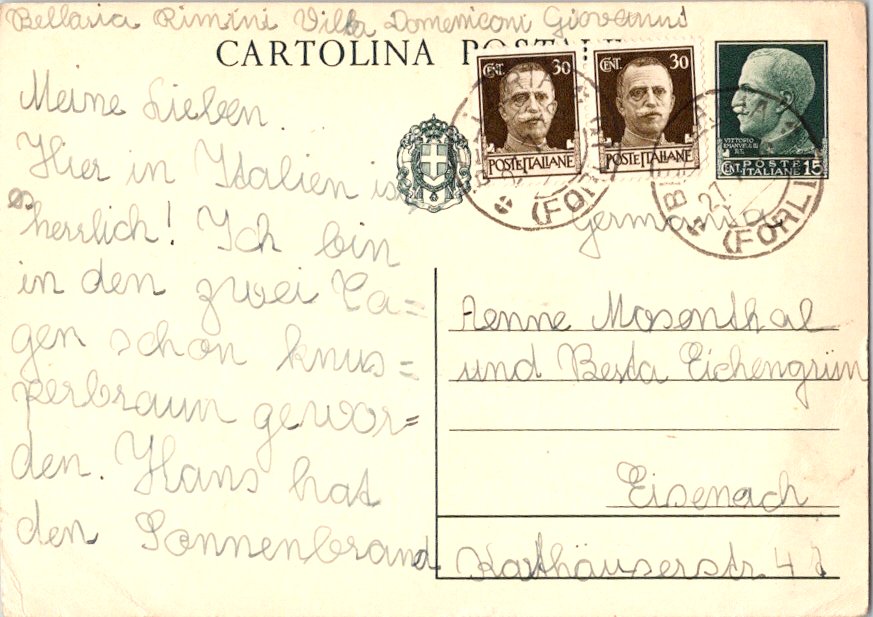 Bellaria Rimini Villa Domeniconi Giovanni
CARTOLINA POSTALE
CENT. 30
POSTE ITALIANE
CENT. 30
POSTE ITALIANE
VITTORIO
EMANUELE III
RE
CENT. POSTE ITALIANE 15
(FORLI)
27
(FORLI)
Germania
Meine Lieben.
Hier in Italien ist
es herrlich! Ich bin
in den zwei Ta=
gen schon knus=
perbraun gewor=
den. Hans hat
den Sonnenbrand
Aenne Mosenthal
und Berta Eichengrün
Eisenach
Karthäuserstr.